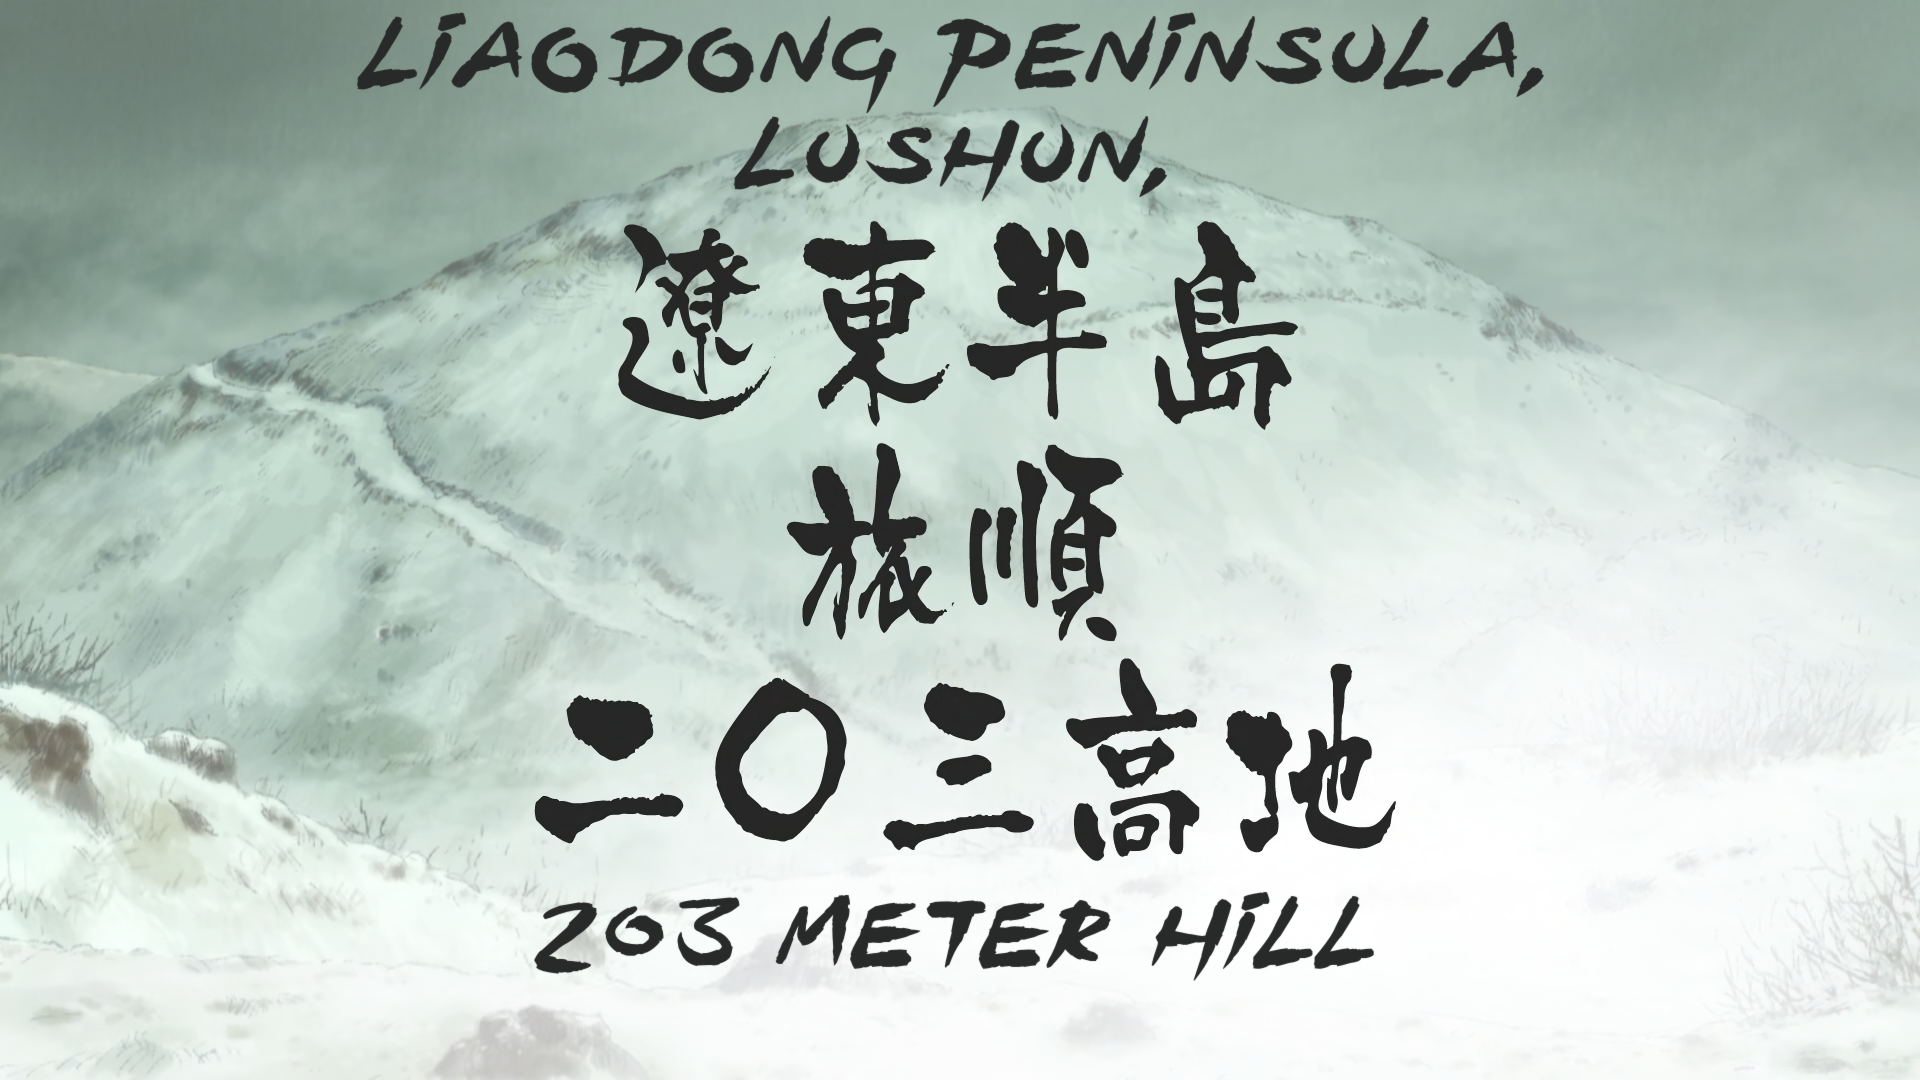 LIAODONG PENINSULA,
LUSHUN,
遼東半島
旅順
二〇三高地
203 METER HILL